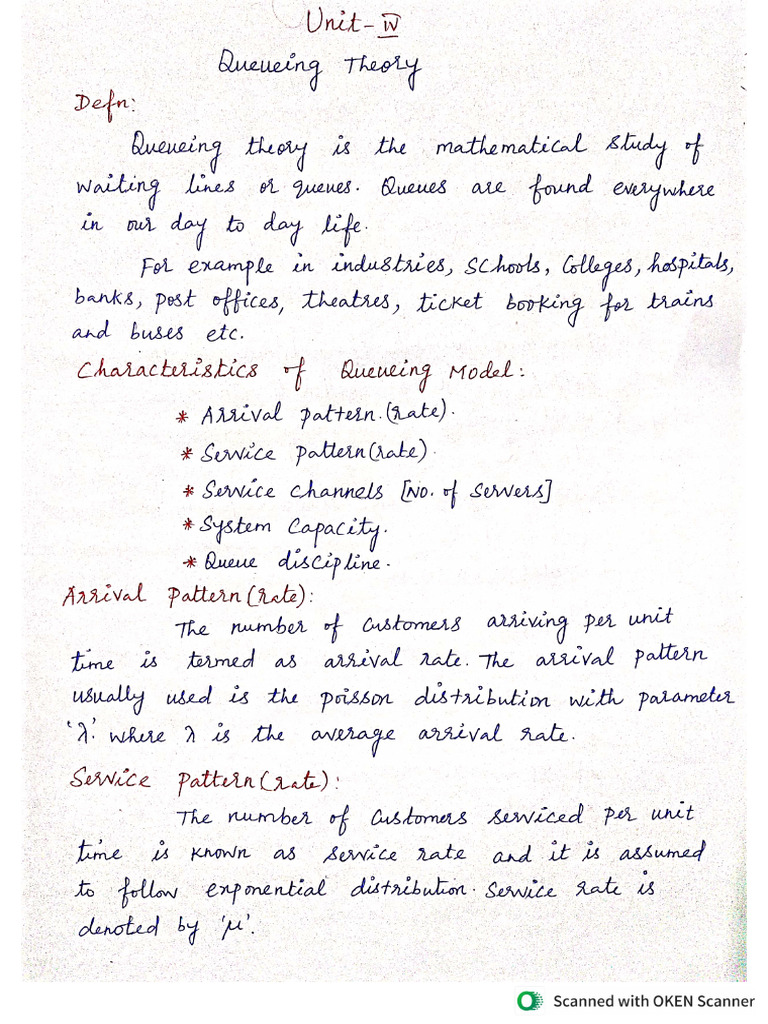 Unit-IV
Queueing Theory
Defn:
Queueing theory is the mathematical study of
waiting lines or queues. Queues are found everywhere
in our day to day life.
For example in industries, schools, Colleges, hospitals,
banks, post offices, theatres, ticket booking for trains
and buses etc.
Characteristics of Queueing Model:
* Arrival pattern.(rate).
* Service pattern(rate).
* Service channels [No. of Servers]
* System Capacity.
* Queue discipline.
Arrival Pattern(rate):
The number of customers arriving per unit
time is termed as arrival rate. The arrival pattern
usually used is the poisson distribution with parameter
'λ'. where λ is the average arrival rate.
Service pattern(rate):
The number of customers serviced per unit
time is known as service rate and it is assumed
to follow exponential distribution. Service rate is
denoted by 'μ'.
Scanned with OKEN Scanner